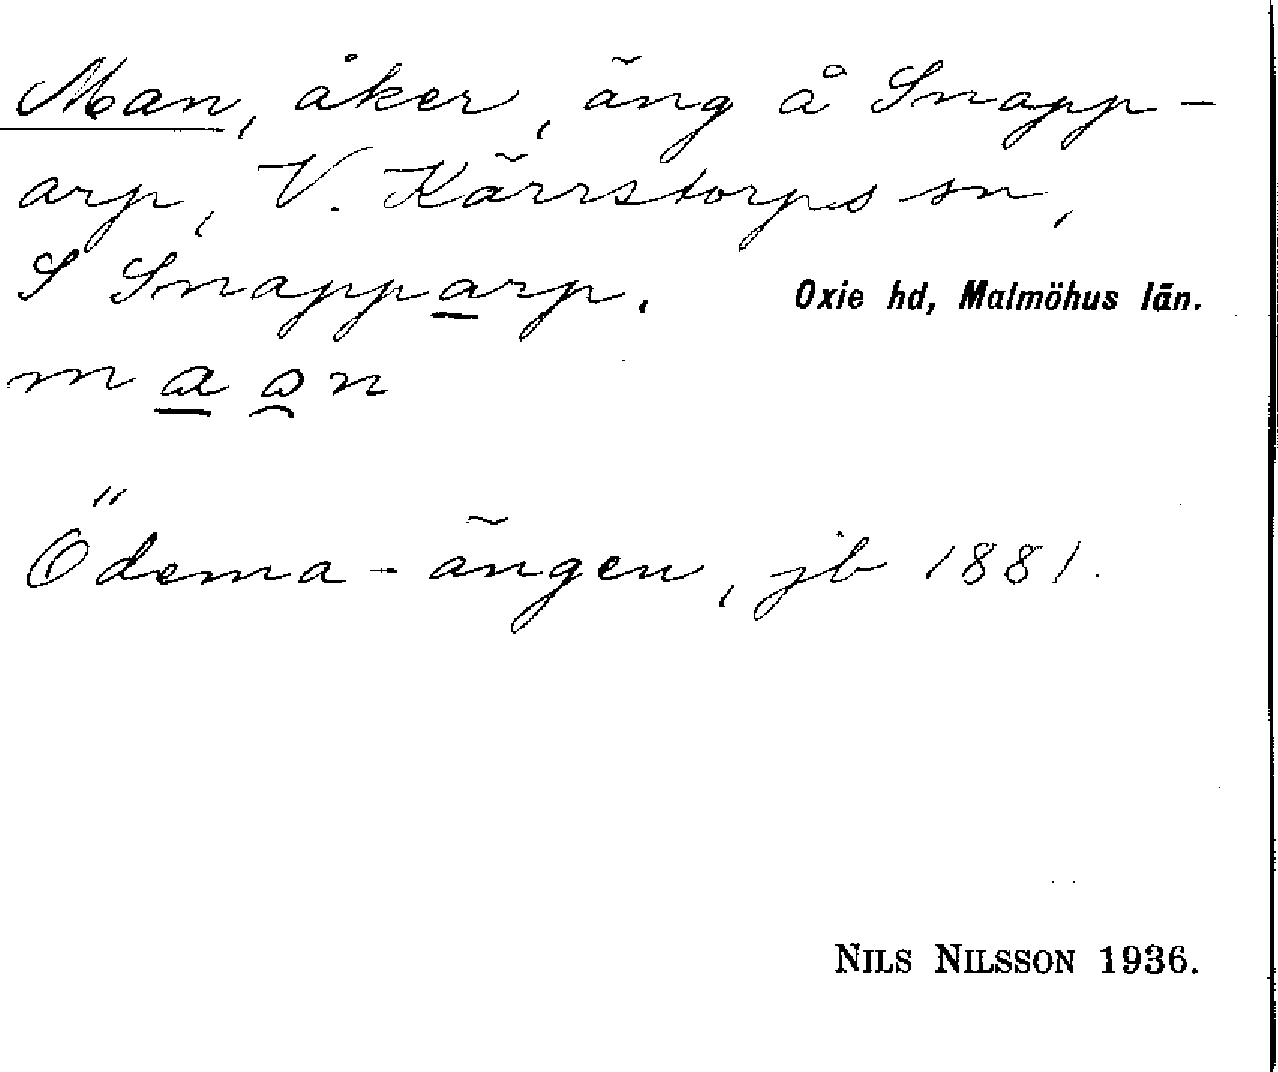 Man, åker, äng å Snapp-
arp, V. Kärrstorps sn,
S Snapparp. Oxie hd, Malmöhus län.
Ödema-ängen, jb 1881.
NILS NILSSON 1936.